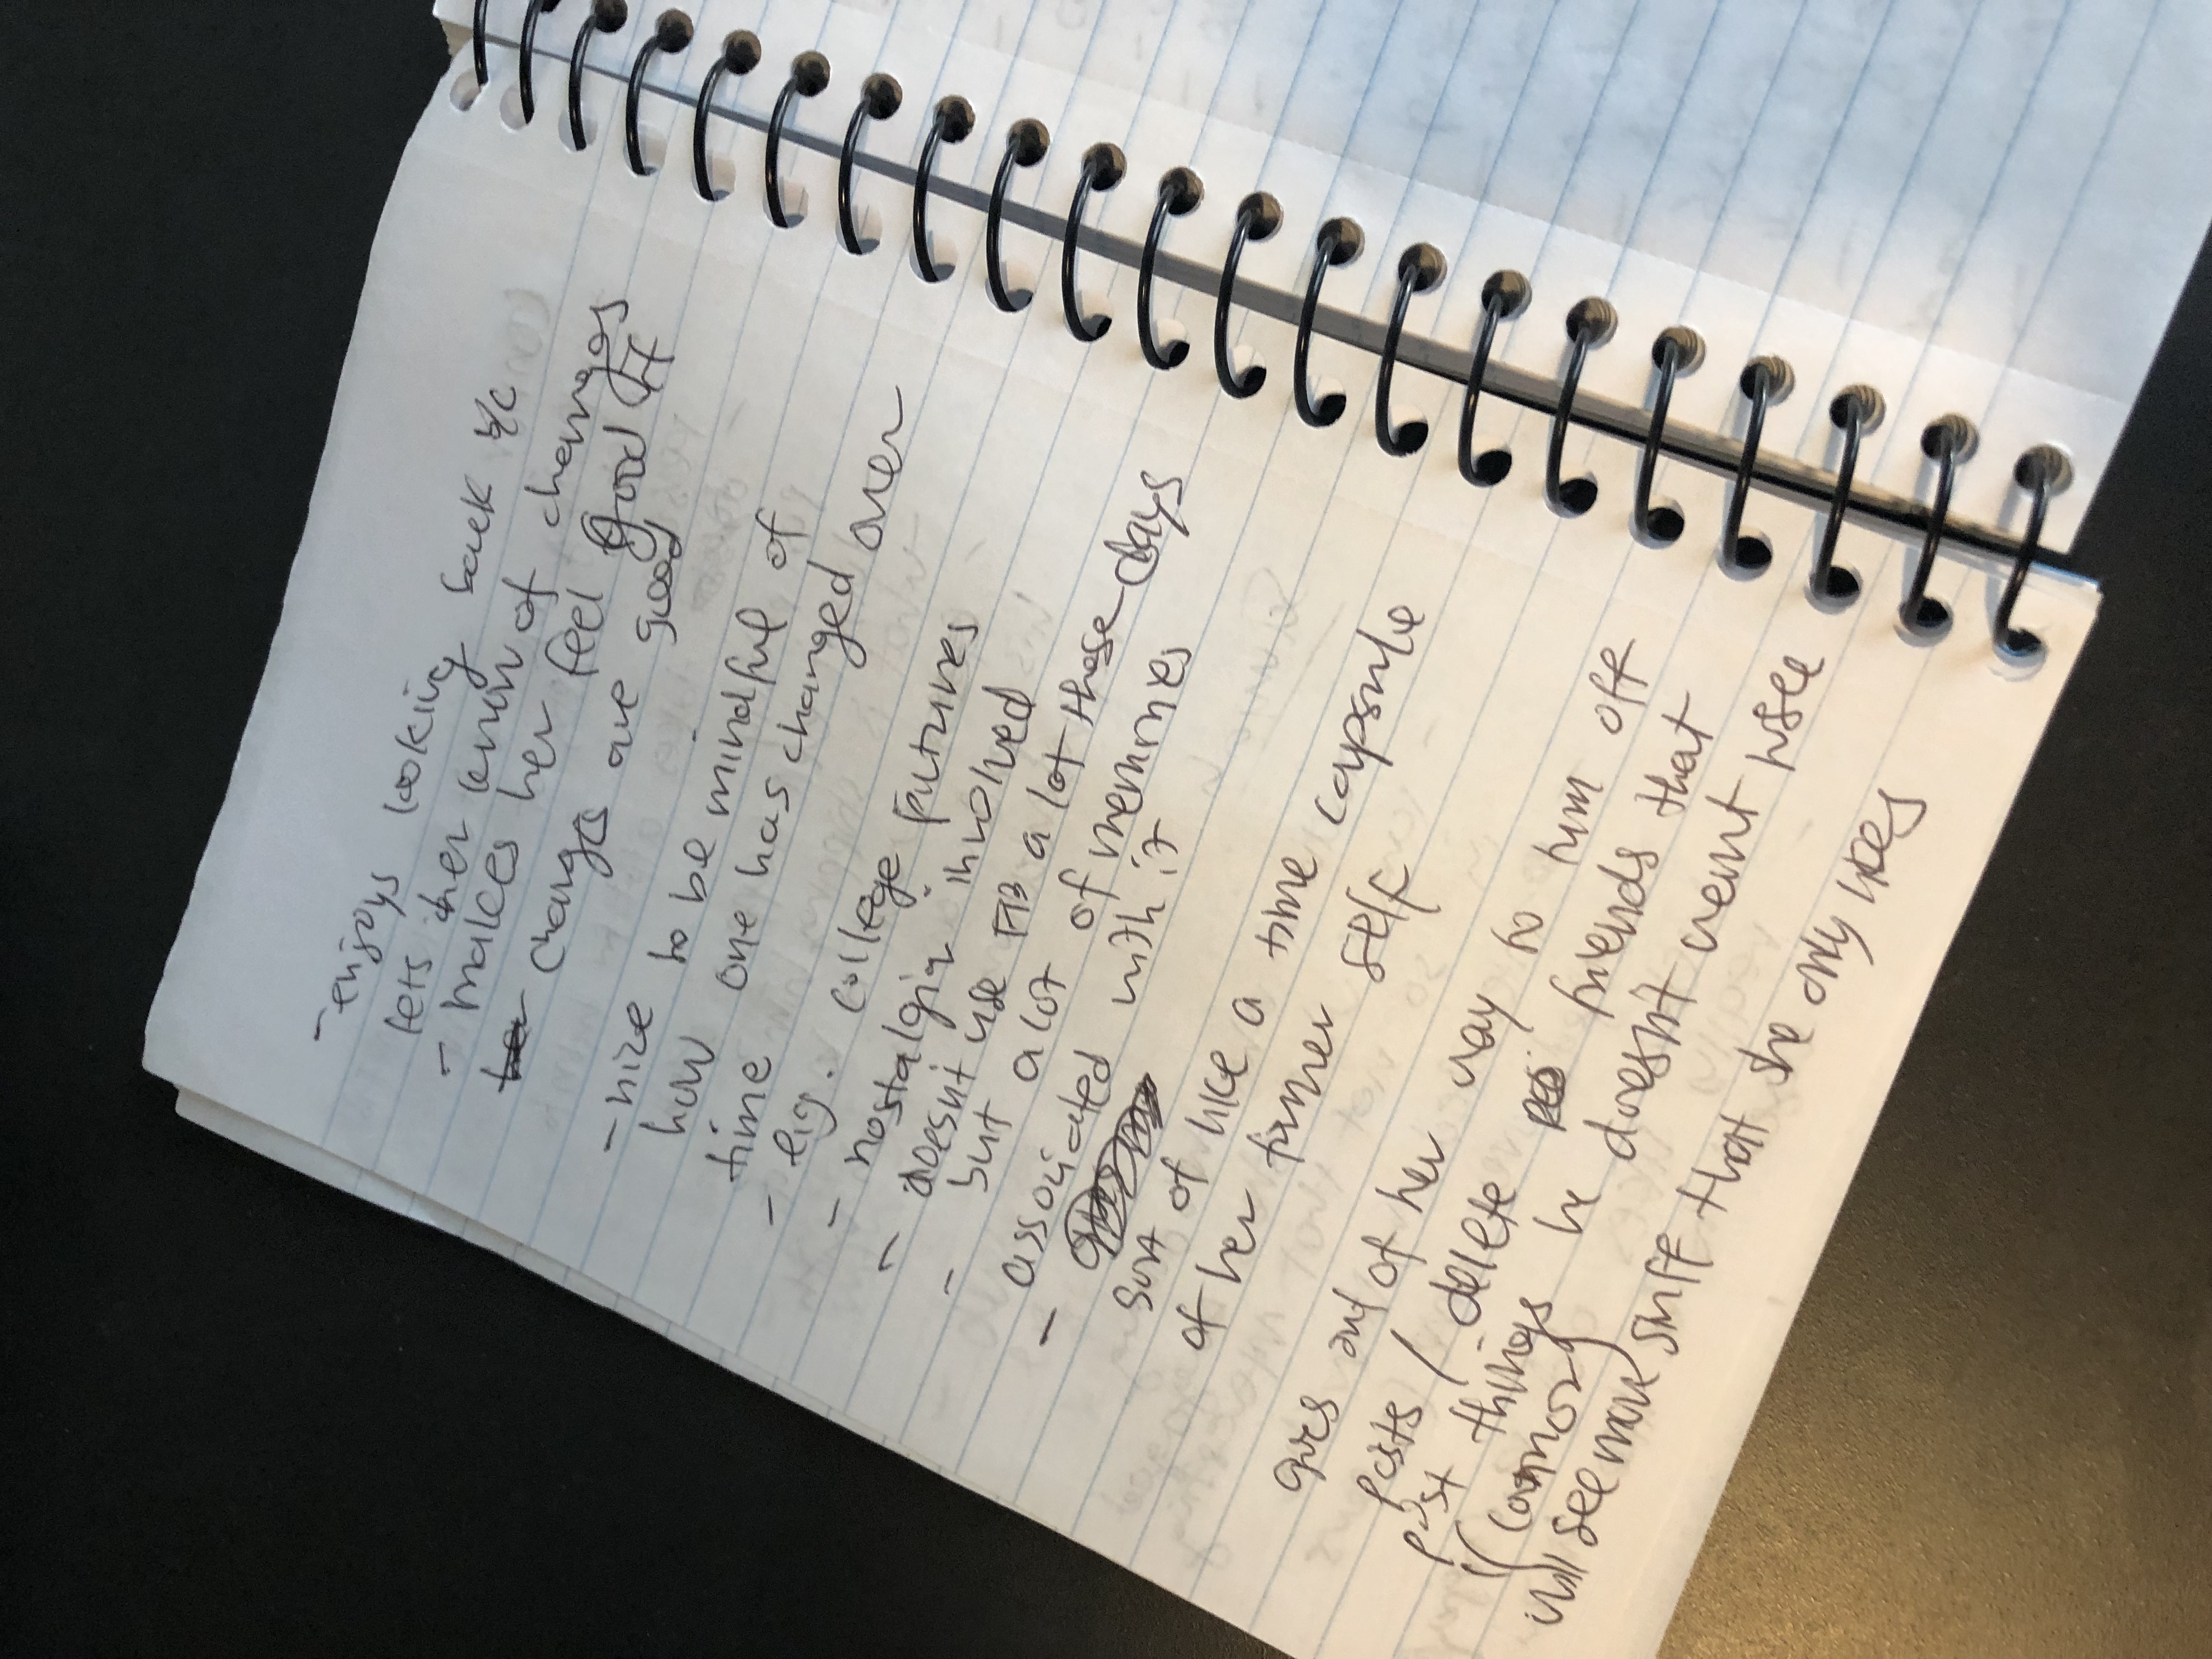 - enjoys looking back b/c
lets her know of changes
- makes her feel good if
her changes are good
- nice to be mindful of
how one has changed over
time
- e.g. college futures
- nostalgia involved
- doesn't use FB a lot these days
- but a lot of memories
associated with it
-
sort of like a time capsule
of her former self
goes out of her way to turn off
posts / delete friends that
post things he doesn't want to see
(Connor)
will see more stuff that she only likes